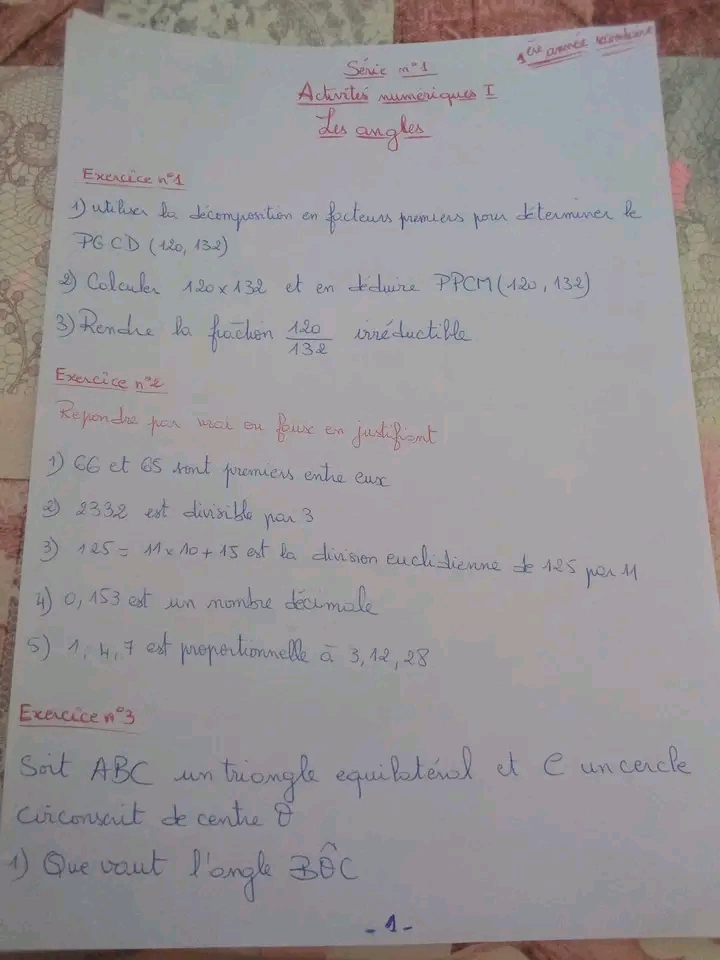 1ère année secondaire
Série n°1
Activités numériques I
Les angles
Exercice n°1
1) utiliser la décomposition en facteurs premiers pour déterminer le
PGCD (120, 132)
2) Calculer 120 x 132 et en déduire PPCM (120, 132)
3) Rendre la fraction 120/132 irréductible
Exercice n°2
Repondre par vrai ou faux en justifiant
1) 66 et 65 sont premiers entre eux
2) 2332 est divisible par 3
3) 125 = 11 x 10 + 15 est la division euclidienne de 125 par 11
4) 0,153 est un nombre décimale
5) 1, 4, 7 est proportionnelle à 3, 12, 28
Exercice n°3
Soit ABC un triangle equilatéral et C un cercle
circonscrit de centre O
1) Que vaut l'angle BÔC
- 1 -